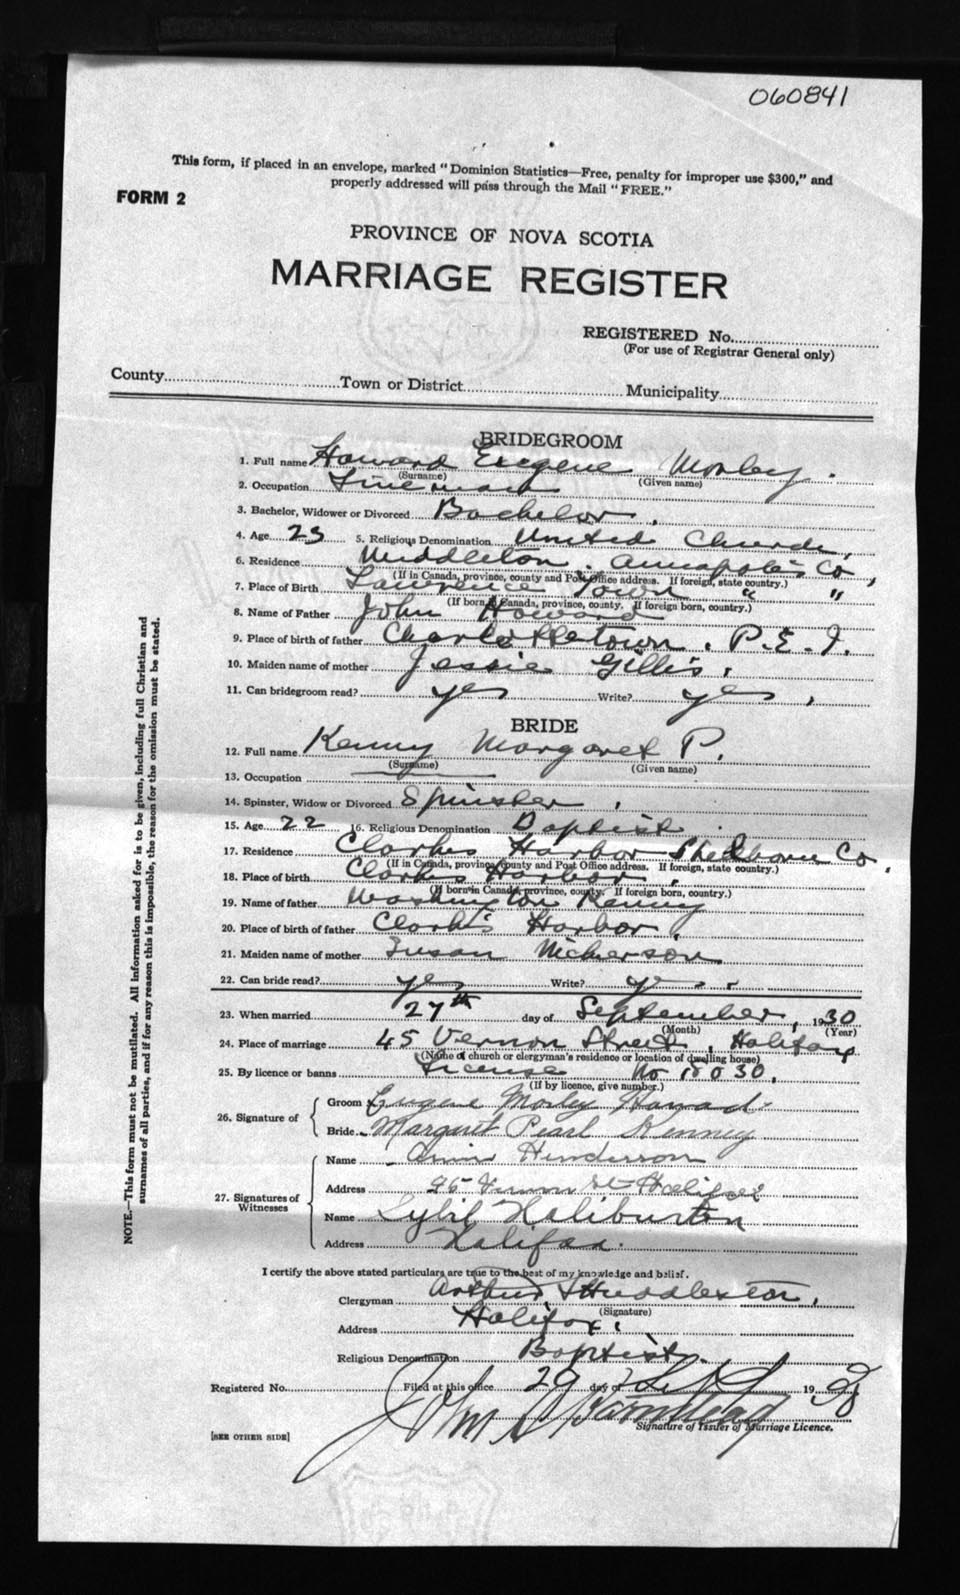 060841
This form, if placed in an envelope, marked "Dominion Statistics—Free, penalty for improper use $300," and
properly addressed will pass through the Mail "FREE."
FORM 2
PROVINCE OF NOVA SCOTIA
MARRIAGE REGISTER
REGISTERED No.
(For use of Registrar General only)
County Town or District Municipality
BRIDEGROOM
1. Full name Howard Eugene Morley.
(Surname) (Given name)
2. Occupation Lineman
3. Bachelor, Widower or Divorced Bachelor.
4. Age 23 5. Religious Denomination United Church,
6. Residence Middleton Annapolis Co,
(If in Canada, province, county and Post Office address. If foreign, state country.)
7. Place of Birth Lawrence Town " "
(If born in Canada, province, county. If foreign born, country.)
8. Name of Father John Howard
9. Place of birth of father Charlottetown. P.E.I.
10. Maiden name of mother Jessie Gillis.
11. Can bridegroom read? yes Write? yes,
BRIDE
12. Full name Kenny Margaret P.
(Surname) (Given name)
13. Occupation
14. Spinster, Widow or Divorced Spinster.
15. Age 22 16. Religious Denomination Baptist.
17. Residence Clarks Harbor Shelborne Co,
(If in Canada, province, county and Post Office address. If foreign, state country.)
18. Place of birth Clarks Harbor.
(If born in Canada, province, county. If foreign born, country.)
19. Name of father Washington Kenny
20. Place of birth of father Clark's Harbor.
21. Maiden name of mother Susan Nickerson
22. Can bride read? yes Write? yes.
23. When married 27th day of September, 1930
(Month) (Year)
24. Place of marriage 45 Vernon Street, Halifax
(Name of church or clergyman's residence or location of dwelling house)
25. By licence or banns License No 15030.
(If by licence, give number.)
26. Signature of Groom Eugene Morley Howard
Bride Margaret Pearl Kenney
27. Signatures of Witnesses Name Henderson
Address 45 Vernon St Halifax
Name Sybil Haliburton
Address Halifax.
I certify the above stated particulars are true to the best of my knowledge and belief.
Clergyman Arthur Huddleston.
(Signature)
Address Halifax.
Religious Denomination Baptist.
Registered No. Filed at this office 29 day of Sept 1930
John
Signature of Issuer of Marriage Licence.
[SEE OTHER SIDE]
NOTE.—This form must not be mutilated. All information asked for is to be given, including full Christian and
surnames of all parties, and if for any reason this is impossible, the reason for the omission must be stated.